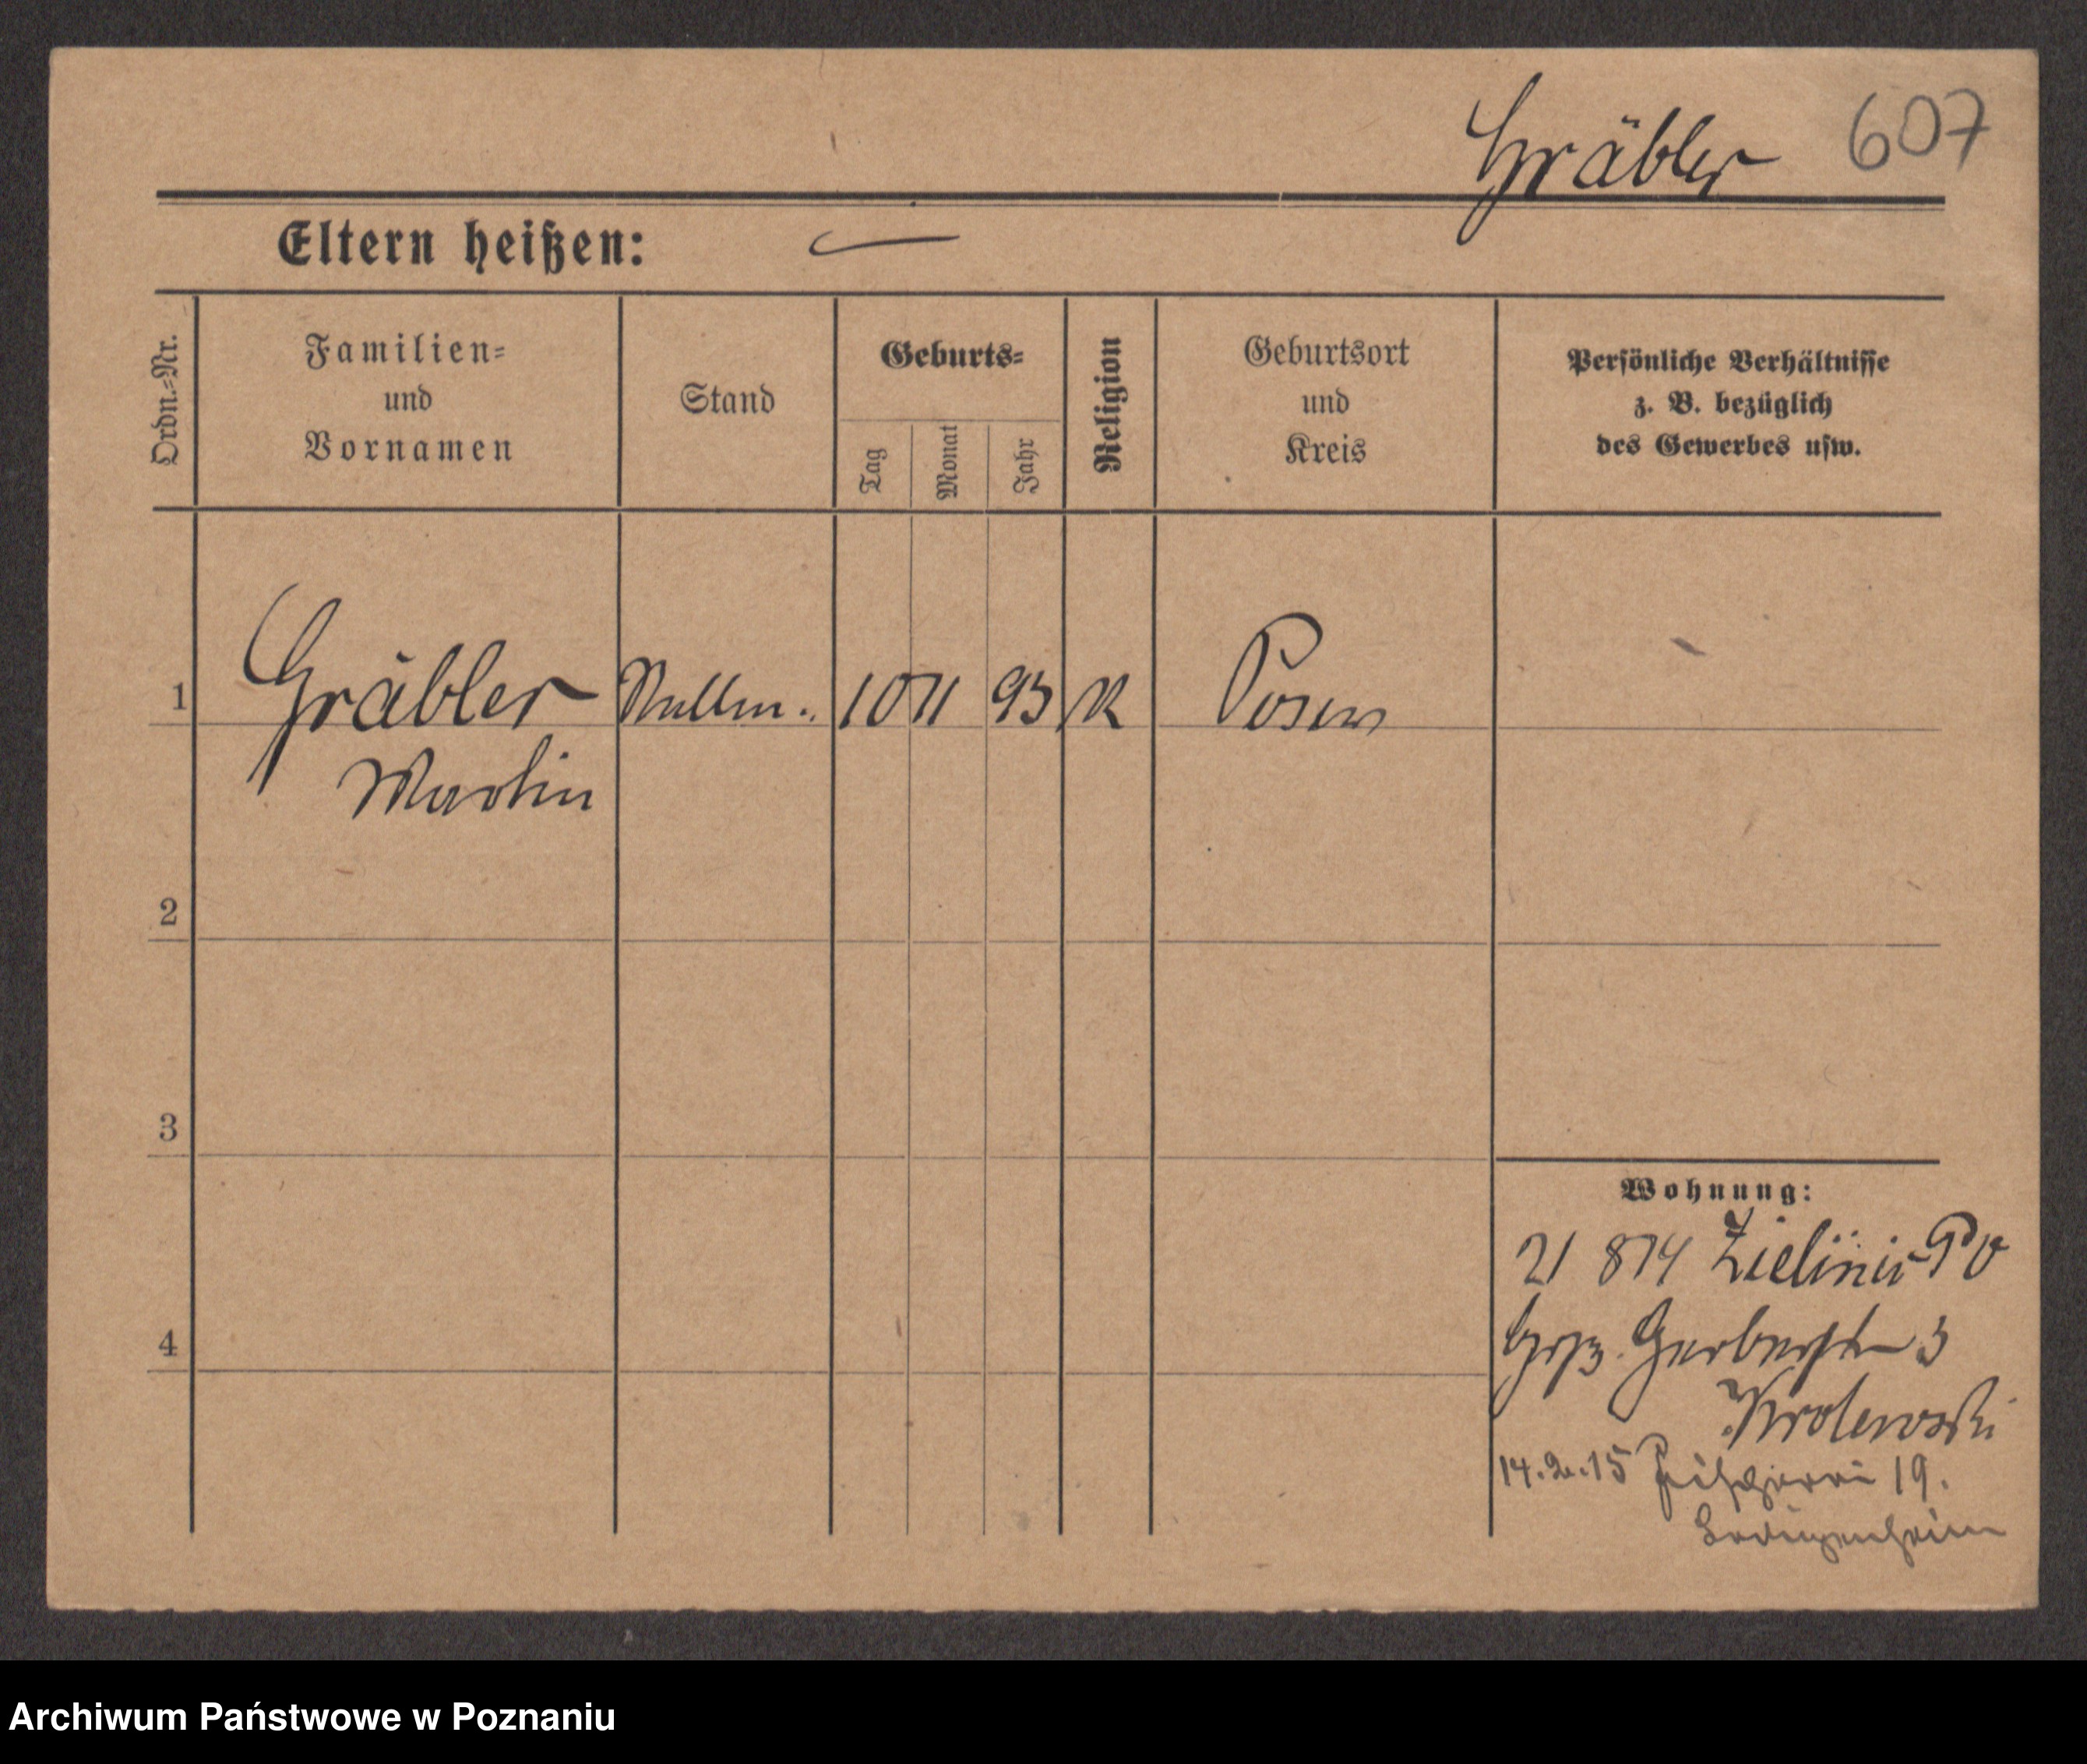 Gräbler 607
Eltern heißen: —
Ordn.=Nr.
Familien=
und
Vornamen
Stand
Geburts=
Tag
Monat
Jahr
Religion
Geburtsort
und
Kreis
Persönliche Verhältnisse
z. B. bezüglich
des Gewerbes usw.
1 Gräbler 10 11 93 K Posen
Martin
2
3
4
Wohnung:
21 8 14
Gerberstr 3
Krolewski
14.2.15 19.
Ledigenheim
Archiwum Państwowe w Poznaniu